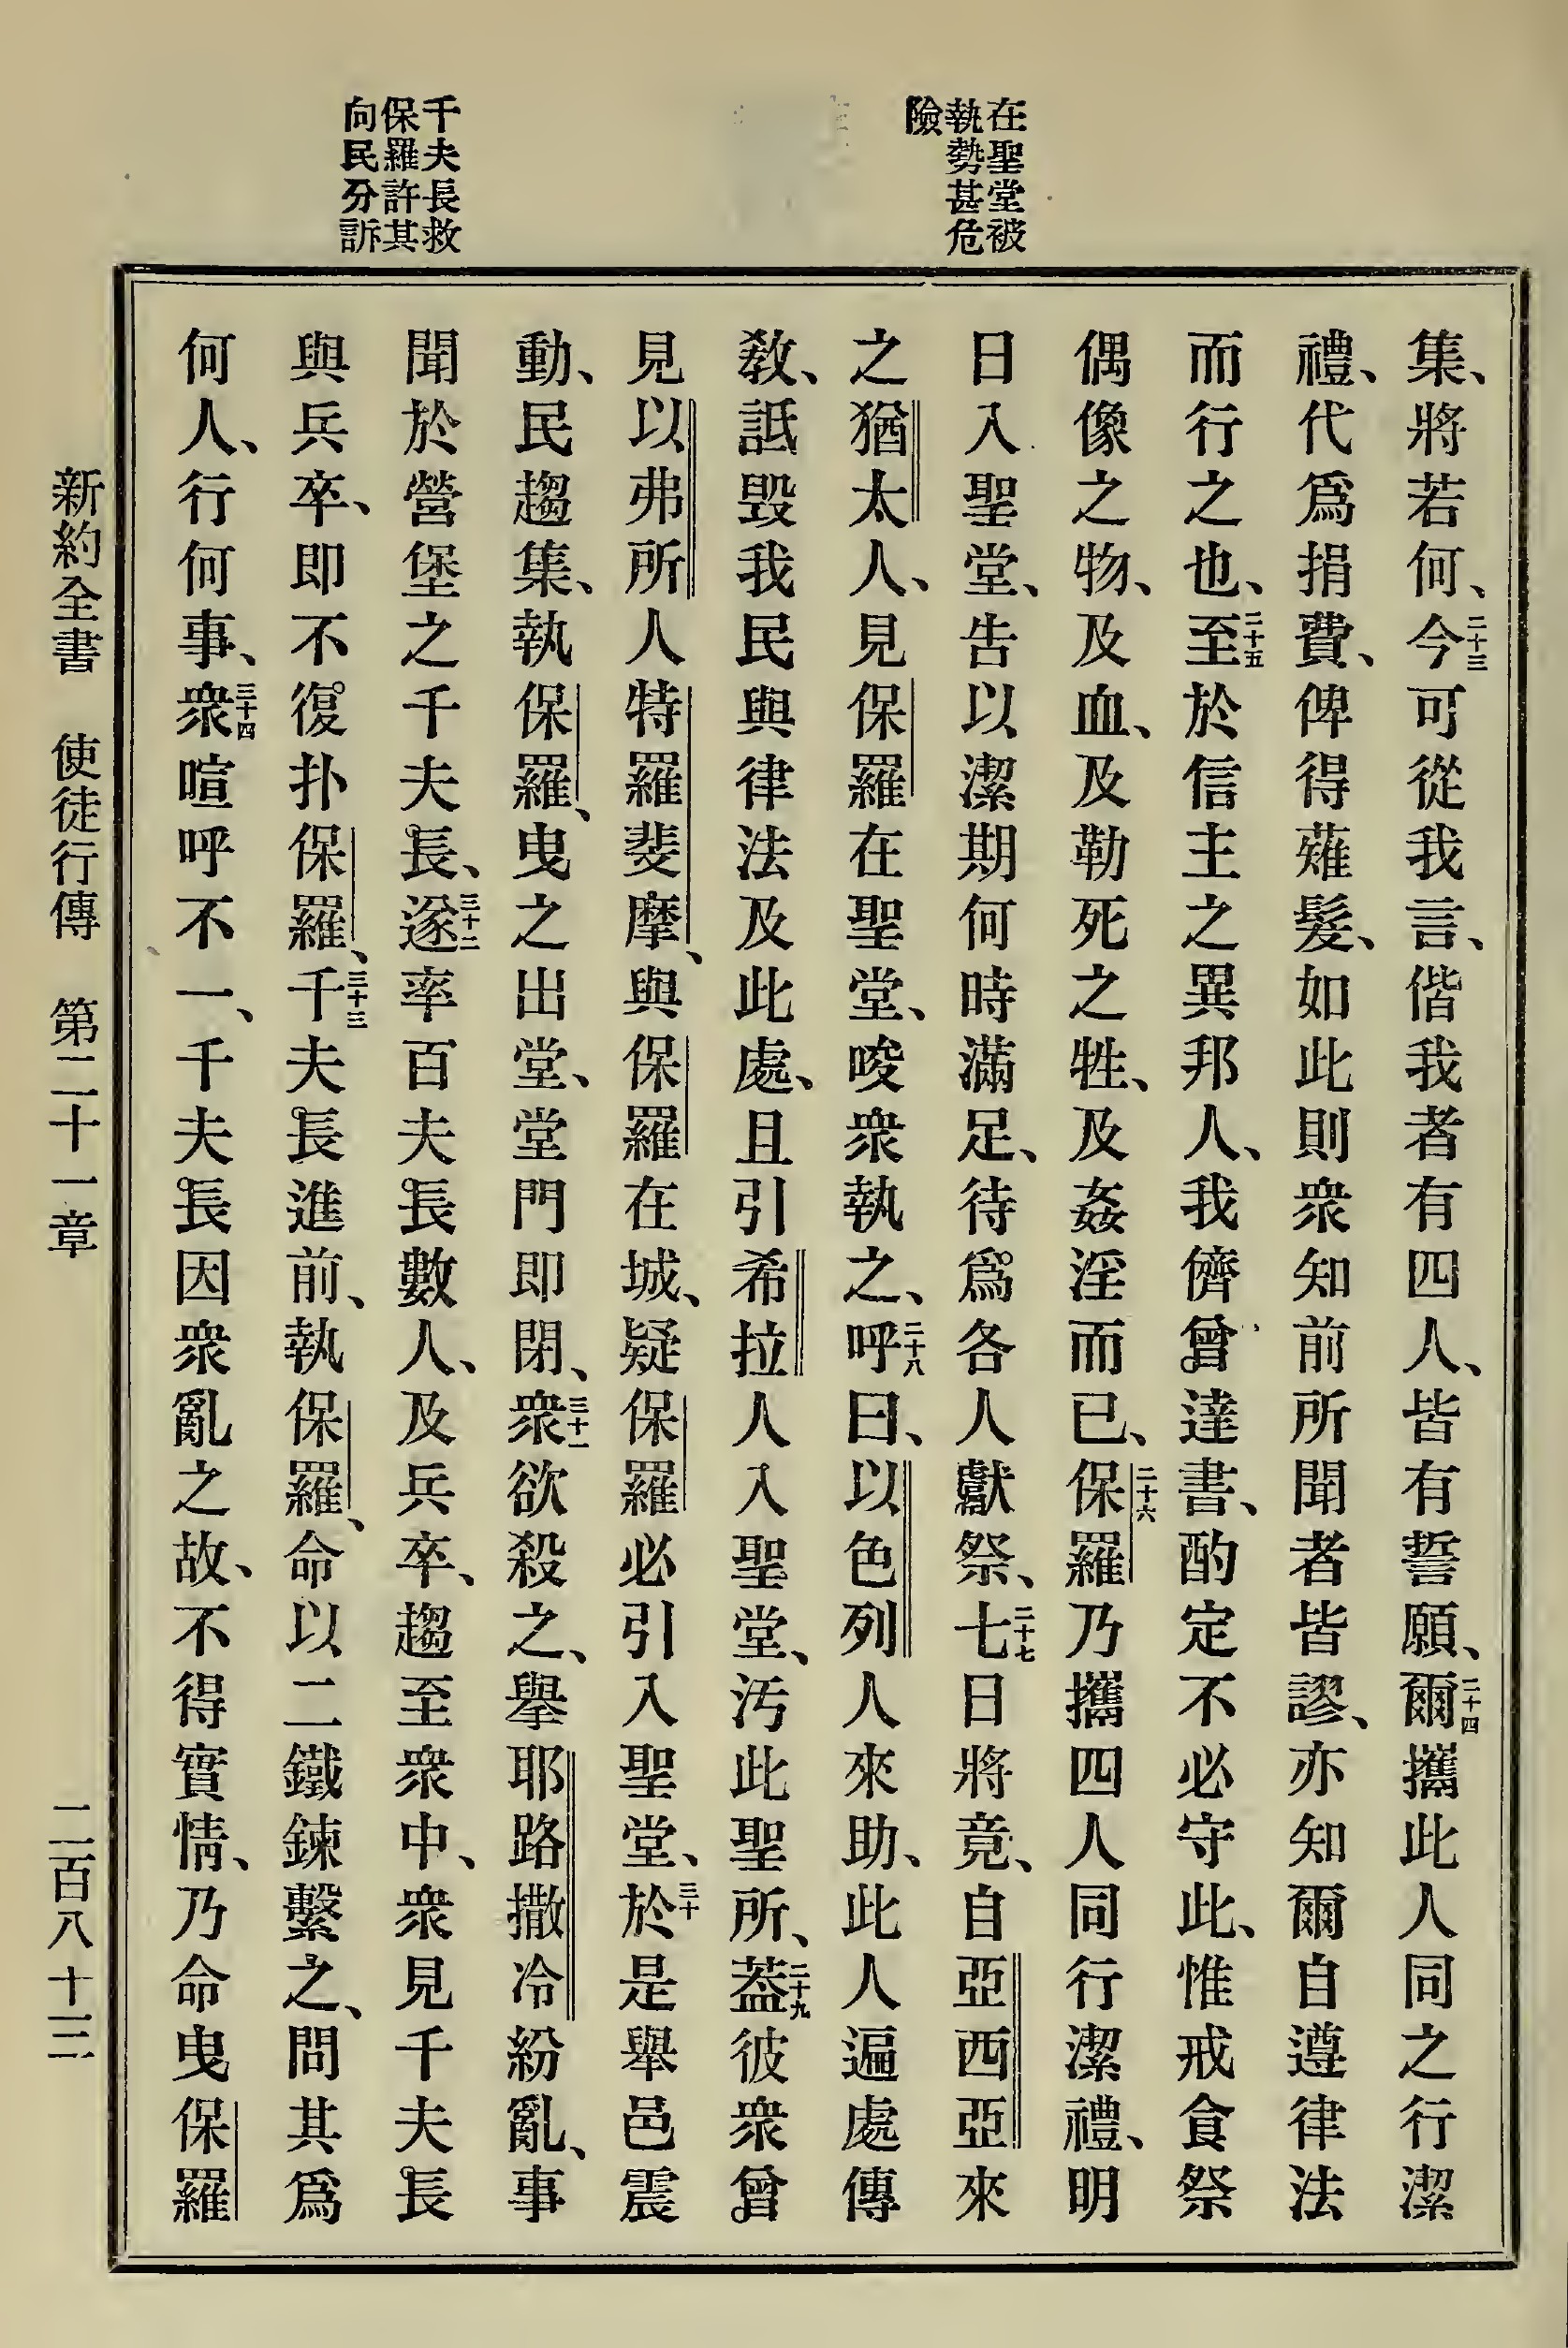 在聖堂被
執勢甚危
險
千夫長救
保羅許其
向民分訴
集、將若何、二十三今可從我言、偕我者有四人、皆有誓願、二十四爾攜此人同之行潔
禮、代爲捐費、俾得薙髮、如此則衆知前所聞者皆謬、亦知爾自遵律法
而行之也、二十五至於信主之異邦人、我儕曾達書、酌定不必守此、惟戒食祭
偶像之物、及血、及勒死之牲、及姦淫而已、二十六保羅乃攜四人同行潔禮、明
日入聖堂、告以潔期何時滿足、待爲各人獻祭、二十七七日將竟、自亞西亞來
之猶太人、見保羅在聖堂、唆衆執之、二十八呼曰、以色列人來助、此人遍處傳
教、詆毀我民與律法及此處、且引希拉人入聖堂、汚此聖所、二十九蓋彼衆曾
見以弗所人特羅斐摩、與保羅在城、疑保羅必引入聖堂、三十於是舉邑震
動、民趨集、執保羅、曳之出堂、堂門即閉、三十一衆欲殺之、舉耶路撒冷紛亂、事
聞於營堡之千夫長、三十二遂率百夫長數人、及兵卒、趨至衆中、衆見千夫長
與兵卒、即不復扑保羅、三十三千夫長進前、執保羅、命以二鐵鍊繫之、問其爲
何人、行何事、三十四衆喧呼不一、千夫長因衆亂之故、不得實情、乃命曳保羅
新約全書 使徒行傳 第二十一章 二百八十三